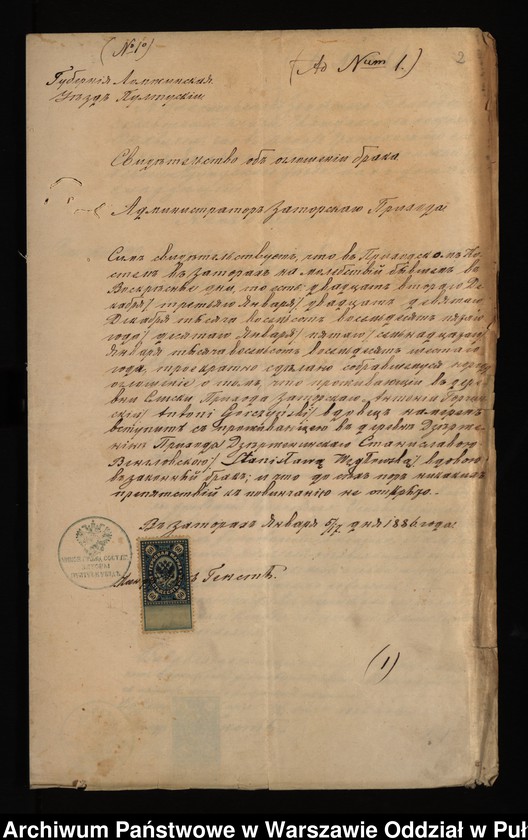 (№ 1º)
(Ad Num 1.)
2
Губернія Ломжинская
Уѣздъ Пултускій
Свидѣтельство объ оглошеніи брака
Администраторъ Заторскаго Прихода
Симъ свидѣтельствуетъ, что въ Приходскомъ Ко-
стелѣ въ Заторахъ на молебствіи бывшемъ въ
Воскресные дни, то есть: двадцать втораго Де-
кабря/ третьяго Января/ двадцать девятаго
Декабря тысяча восемьсотъ восемьдесятъ пятаго
года/ десятаго Января/ пятаго/ семнадцатаго/
Января тысяча восемьсотъ восемьдесятъ шестаго
года, троекратно сдѣлано собравшемуся народу
оглошеніе о томъ, что проживающій въ дерев-
вни Прихода Заторскаго Антоній Горчин-
скій/ Antoni Gorczyński/ вдовецъ намѣренъ
вступить съ проживающею въ деревнѣ
Прихода Станиславою
Венгловскою/ Stanisława вдовою
въ законный бракъ; и что до сихъ поръ никакихъ
препятствій къ повенчанію не открыто.
Въ Заторахъ Января 5/17 дня 1886 года.
(1)
Archiwum Państwowe w Warszawie Oddział w Puł